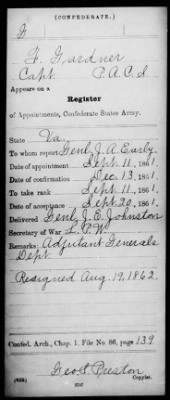 (CONFEDERATE.)
G
F. Gardner
Capt P.A.C.S
Appears on a
Register
of Appointments, Confederate States Army.
State Va.
To whom report Genl. J. A. Early
Date of appointment Sept. 11, 1861.
Date of confirmation Dec. 13, 1861.
To take rank Sept. 11, 1861.
Date of acceptance Sept 20, 1861.
Delivered Genl. J. E. Johnston
Secretary of War L. P. W.
Remarks: Adjutant Generals
Dept
Resigned Aug. 19, 1862.
Confed. Arch., Chap. 1, File No. 86, page 139
Geo S. Preston
Copyist.